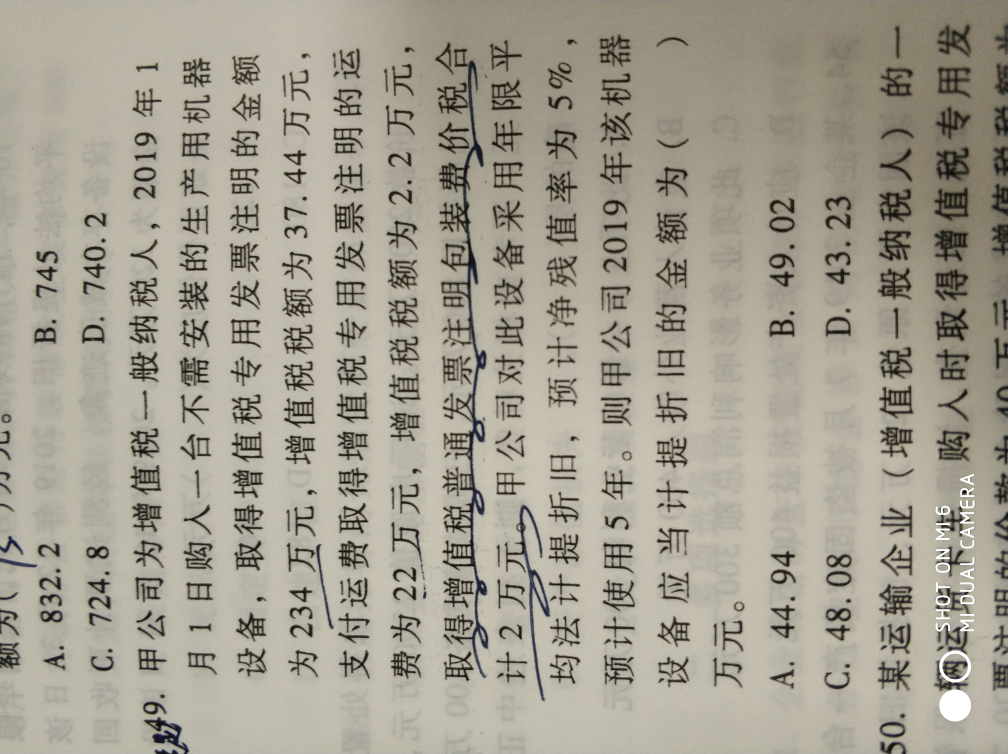 额为( )万元。
A. 832.2 B. 745
C. 724.8 D. 740.2
49. 甲公司为增值税一般纳税人，2019 年 1
月 1 日购入一台不需安装的生产用机器
设备，取得增值税专用发票注明的金额
为 234 万元，增值税税额为 37.44 万元，
支付运费取得增值税专用发票注明的运
费为 22 万元，增值税税额为 2.2 万元，
取得增值税普通发票注明包装费价税合
计 2 万元。甲公司对此设备采用年限平
均法计提折旧，预计净残值率为 5%，
预计使用 5 年。则甲公司 2019 年该机器
设备应当计提折旧的金额为( )
万元。
A. 44.94 B. 49.02
C. 48.08 D. 43.23
50. 某运输企业（增值税一般纳税人）的一
辆运 购入时取得增值税专用发
SHOT ON MI 6
MI DUAL CAMERA